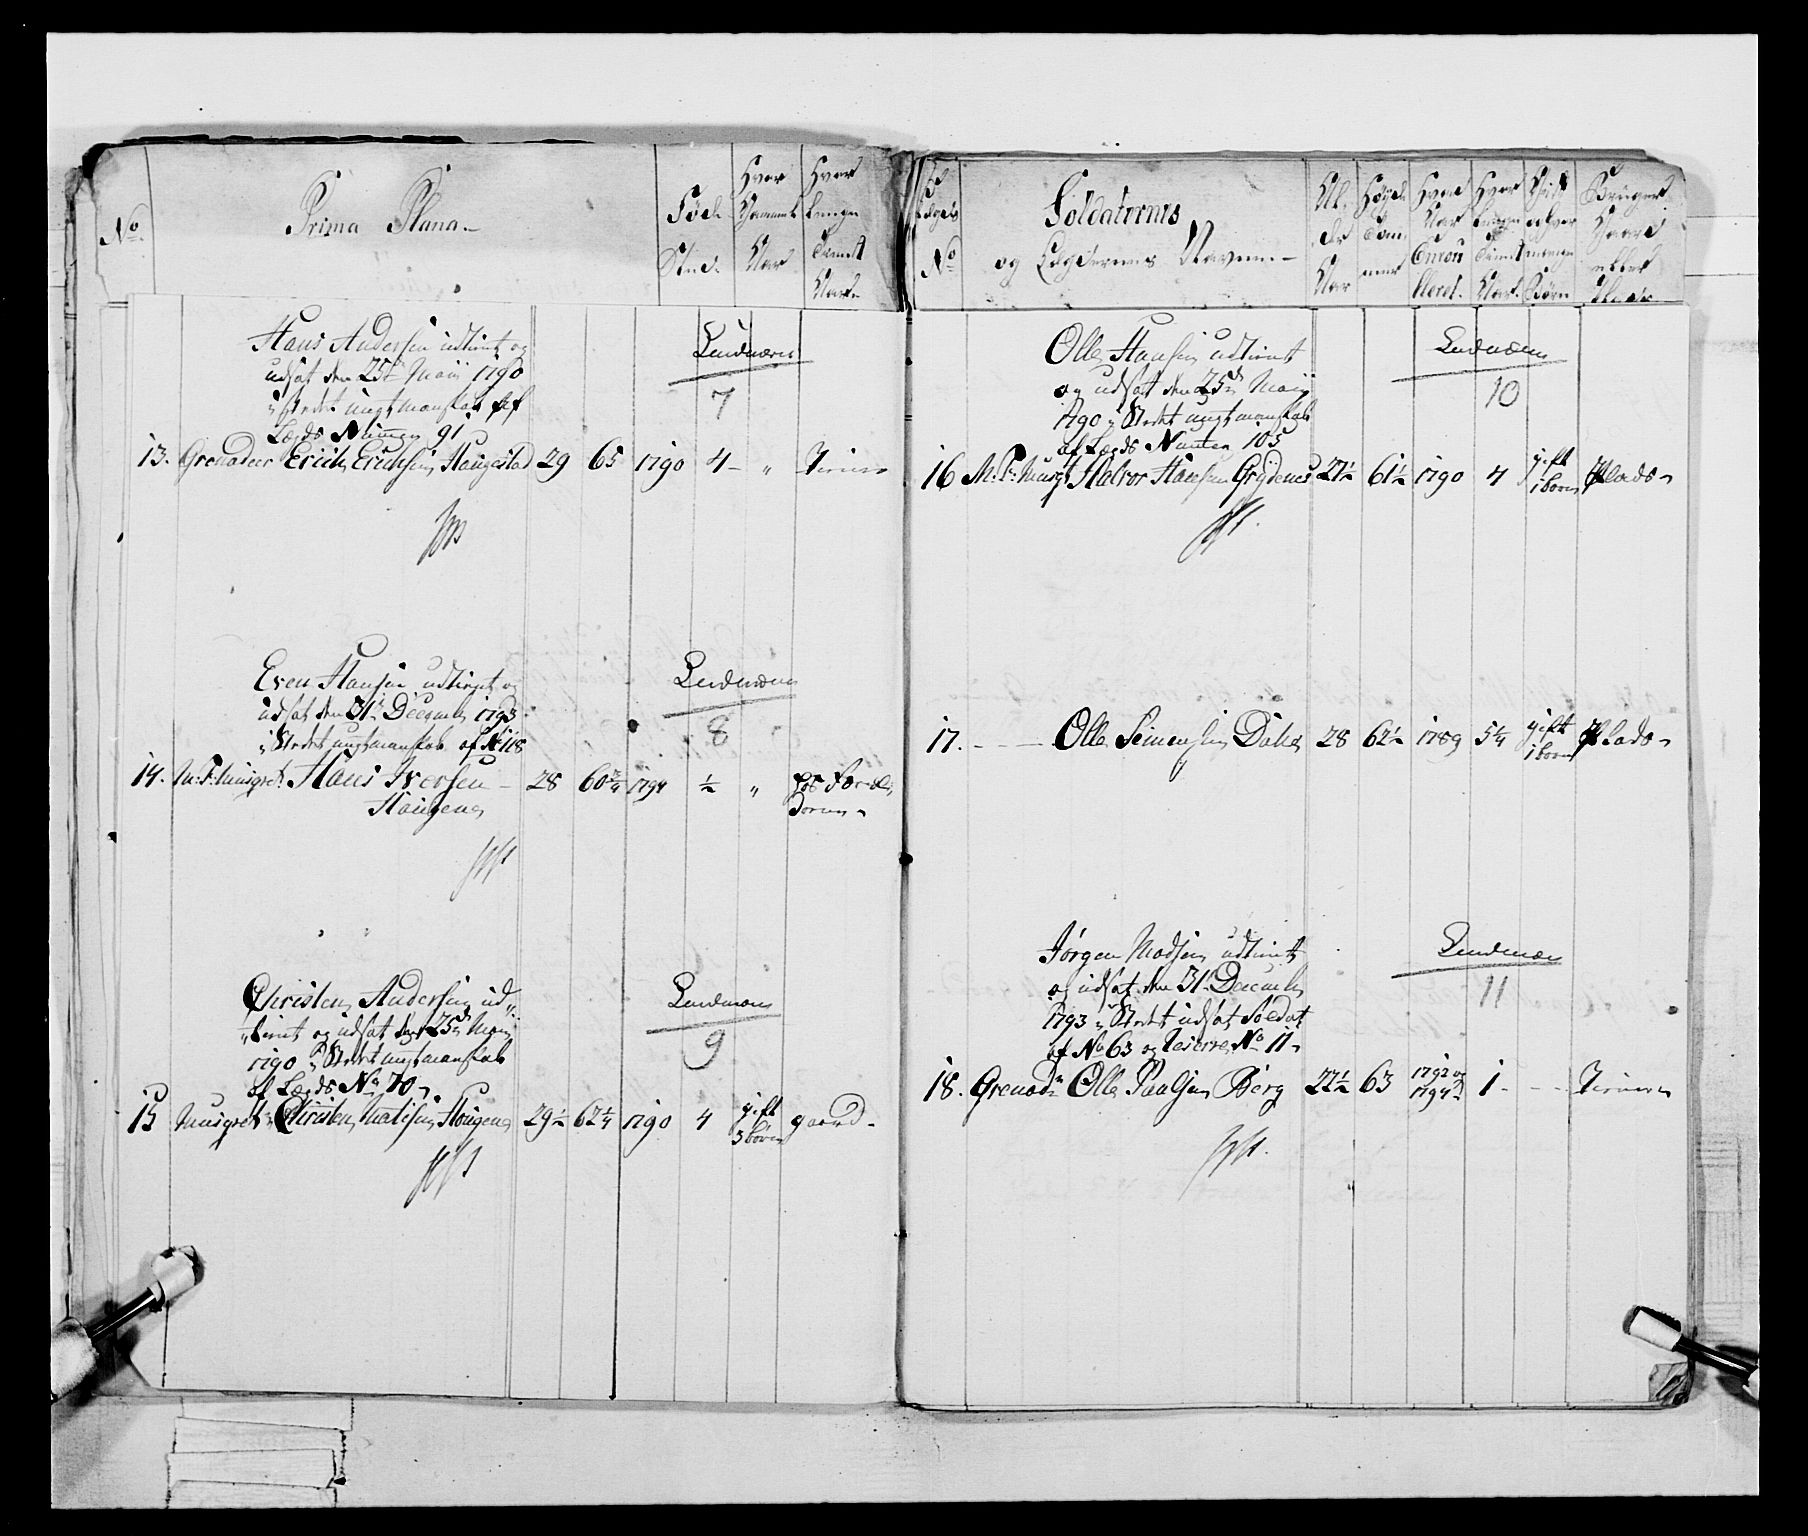 No.
Prima Plana.
Føde Sted.
Hvor Gammel Aar
Hvor Lenge Tient Aar
Hans Andersen udtient og
udsat den 25de Maij 1790
i Stedet ungt mandskab af
Lægds Numer 91
Lendmæn
7
13. Grenadeer Erich Erichsen Haugestad 29 65 1790 4 - " Tiener
Even Hansen udtient og
udsat den 31te December 1793
i Stedet ungt mandskab af No 118
Lendmæn
8
14. M: F: Musqret. Hans Iversen - 28 60 3/4 1794 1/2 " for Foræl,
Haugen dorne
Christen Andersen ud
tient og udsat den 25de Maij
1790 i Stedet ungt mandskab
af Lægds No 70
Lendmæn
9
15 Musqret. Christen Matisen Hougen 29 1/2 62 1/4 1790 4 gift
3 børn gaard
Lægds No
Soldaternes
og Lægdernes Navne
Al,der Aar
Høyde Tommer
Hvad Aar Enrou lleret.
Hvor Lenge Tient Aar.
Gift og hvor mange Børn
Bruger Gaard eller Plads
Olle Hansen udtient
og udsat den 25de Maij
1790 i Stedet ungt mandskab
af Lægds Numer 105
Lendmæn
10
16 M: F: Musqt Halvor Hansen Grydenes 27 1/2 61 1/2 1790 4 gift
1 barn Plads
17. - - - Olle Simensen Dahl 28 62 1/2 1789 5 1/4 gift
1 barn Plads
Jørgen Madsen udtient
og udsat den 31te December
1793 i Stedet udsat Soldat
af No 63 og Reserve No 11
Lendmæn
11
18. Grenad: Olle Paulsen Berg 22 1/2 63 1792 og
1794 1 - - - Tiener